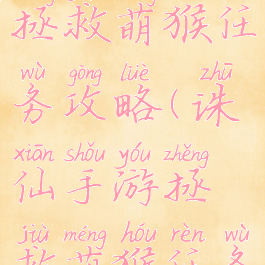 拯救萌猴任
wù gōng lüè zhū
务攻略(诛
xiān shǒu yóu zhěng
仙手游拯
jiù méng hóu rèn wù
救萌猴任务